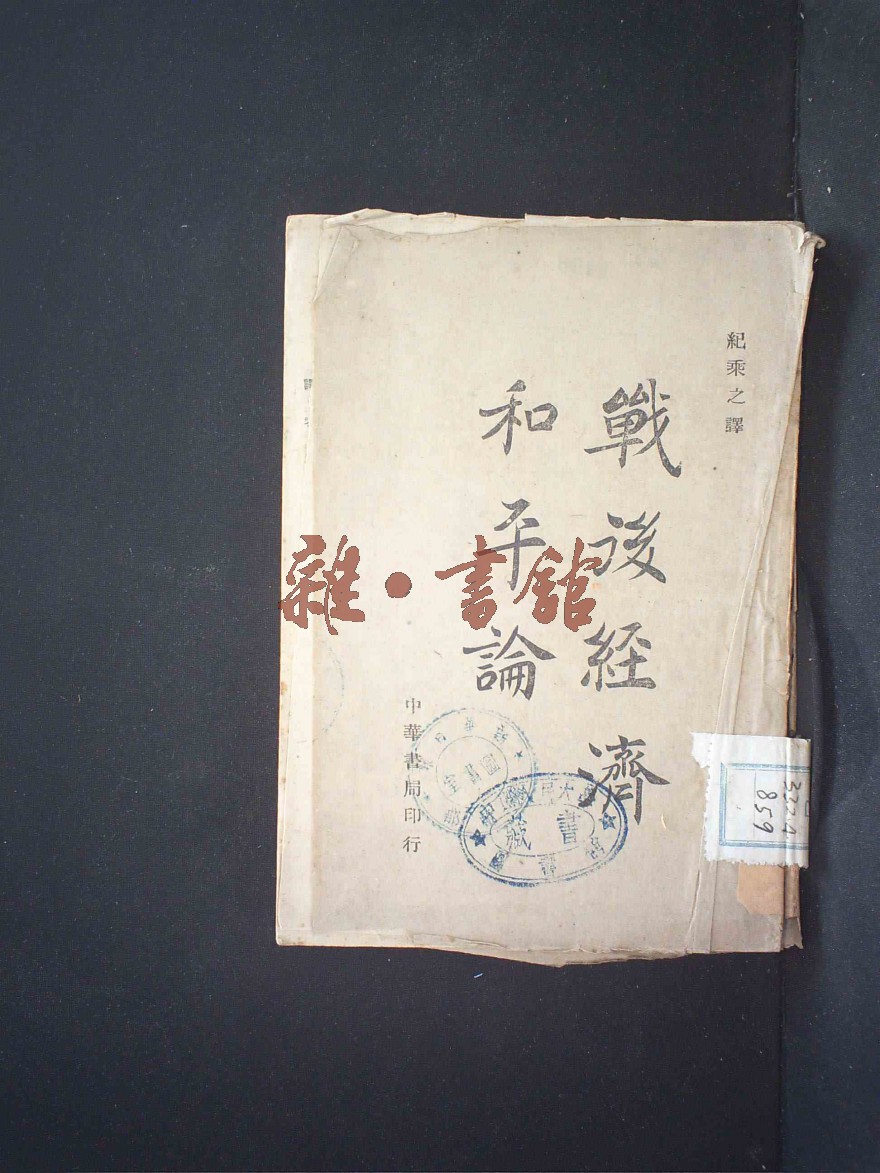 紀乘之譯
戰後经濟
和平論
中華書局印行
雜·書館
藏書
圖書室
332.4
859